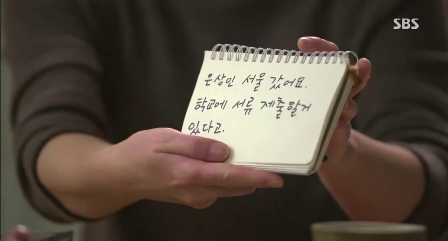 SBS
은상인 서울 갔어요.
학교에 서류 제출할거
있다고.